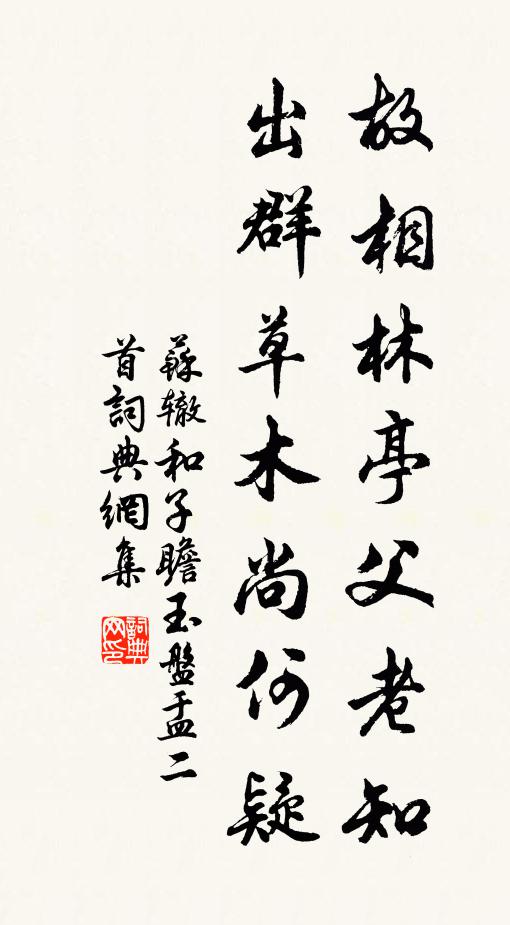 故相林亭父老知
出群草木尚何疑
蘇轍和子瞻玉盤盂二
首詞典網集
詞典
网印